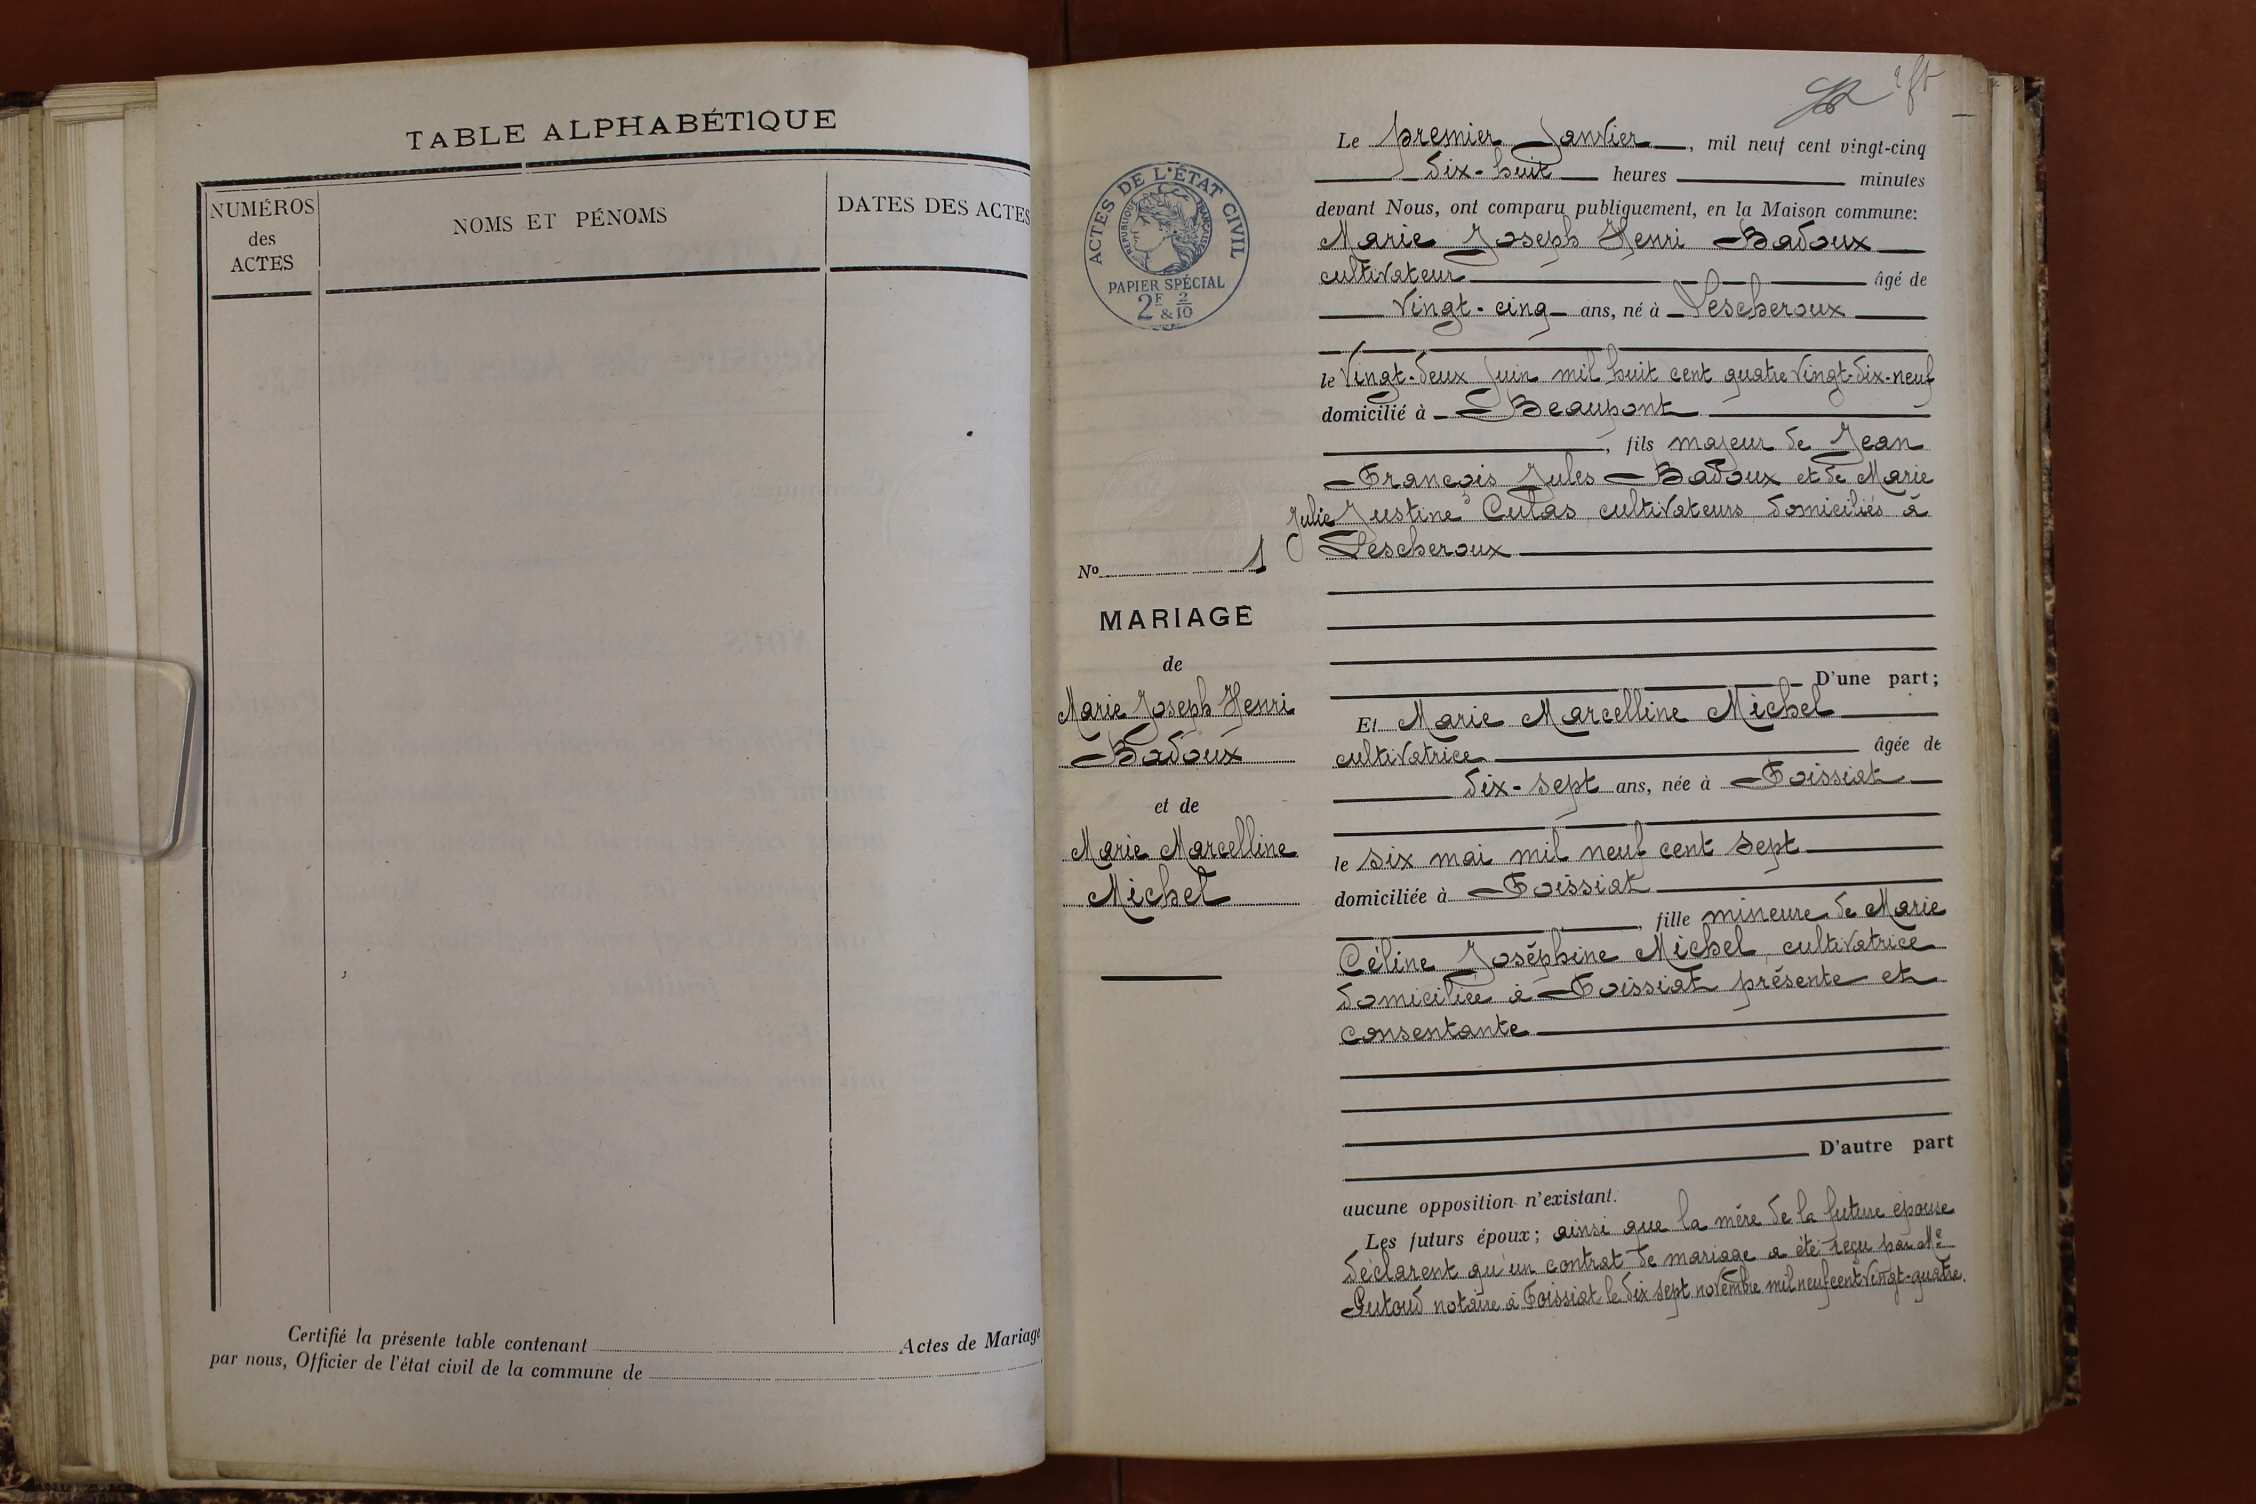 TABLE ALPHABÉTIQUE
NUMÉROS
des
ACTES
NOMS ET PÉNOMS
DATES DES ACTES
Certifié la présente table contenant Actes de Mariage
par nous, Officier de l'état civil de la commune de
ACTES DE L'ÉTAT CIVIL
RÉPUBLIQUE FRANÇAISE
PAPIER SPÉCIAL
2F & 2/10
Le premier Janvier, mil neuf cent vingt-cinq
dix-huit heures minutes
devant Nous, ont comparu publiquement, en la Maison commune:
Marie Joseph Henri Badoux
cultivateur âgé de
vingt-cinq ans, né à Lescheroux
le vingt-deux Juin mil huit cent quatre vingt-dix-neuf
domicilié à Beaupont
, fils majeur de Jean
François Jules Badoux et de Marie
Julie Justine Cutas cultivateurs domiciliés à
Lescheroux
D'une part;
No 1
MARIAGE
de
Marie Joseph Henri
Badoux
et de
Marie Marcelline
Michel
Et Marie Marcelline Michel
cultivatrice âgée de
dix-sept ans, née à Foissiat
le six mai mil neuf cent sept
domiciliée à Foissiat
, fille mineure de Marie
Céline Joséphine Michel, cultivatrice
domiciliée à Foissiat présente et
consentante
D'autre part
aucune opposition n'existant.
Les futurs époux; ainsi que la mère de la future épouse
déclarent qu'un contrat de mariage a été reçu par Me
Putoud notaire à Foissiat le dix sept novembre mil neuf cent vingt-quatre.